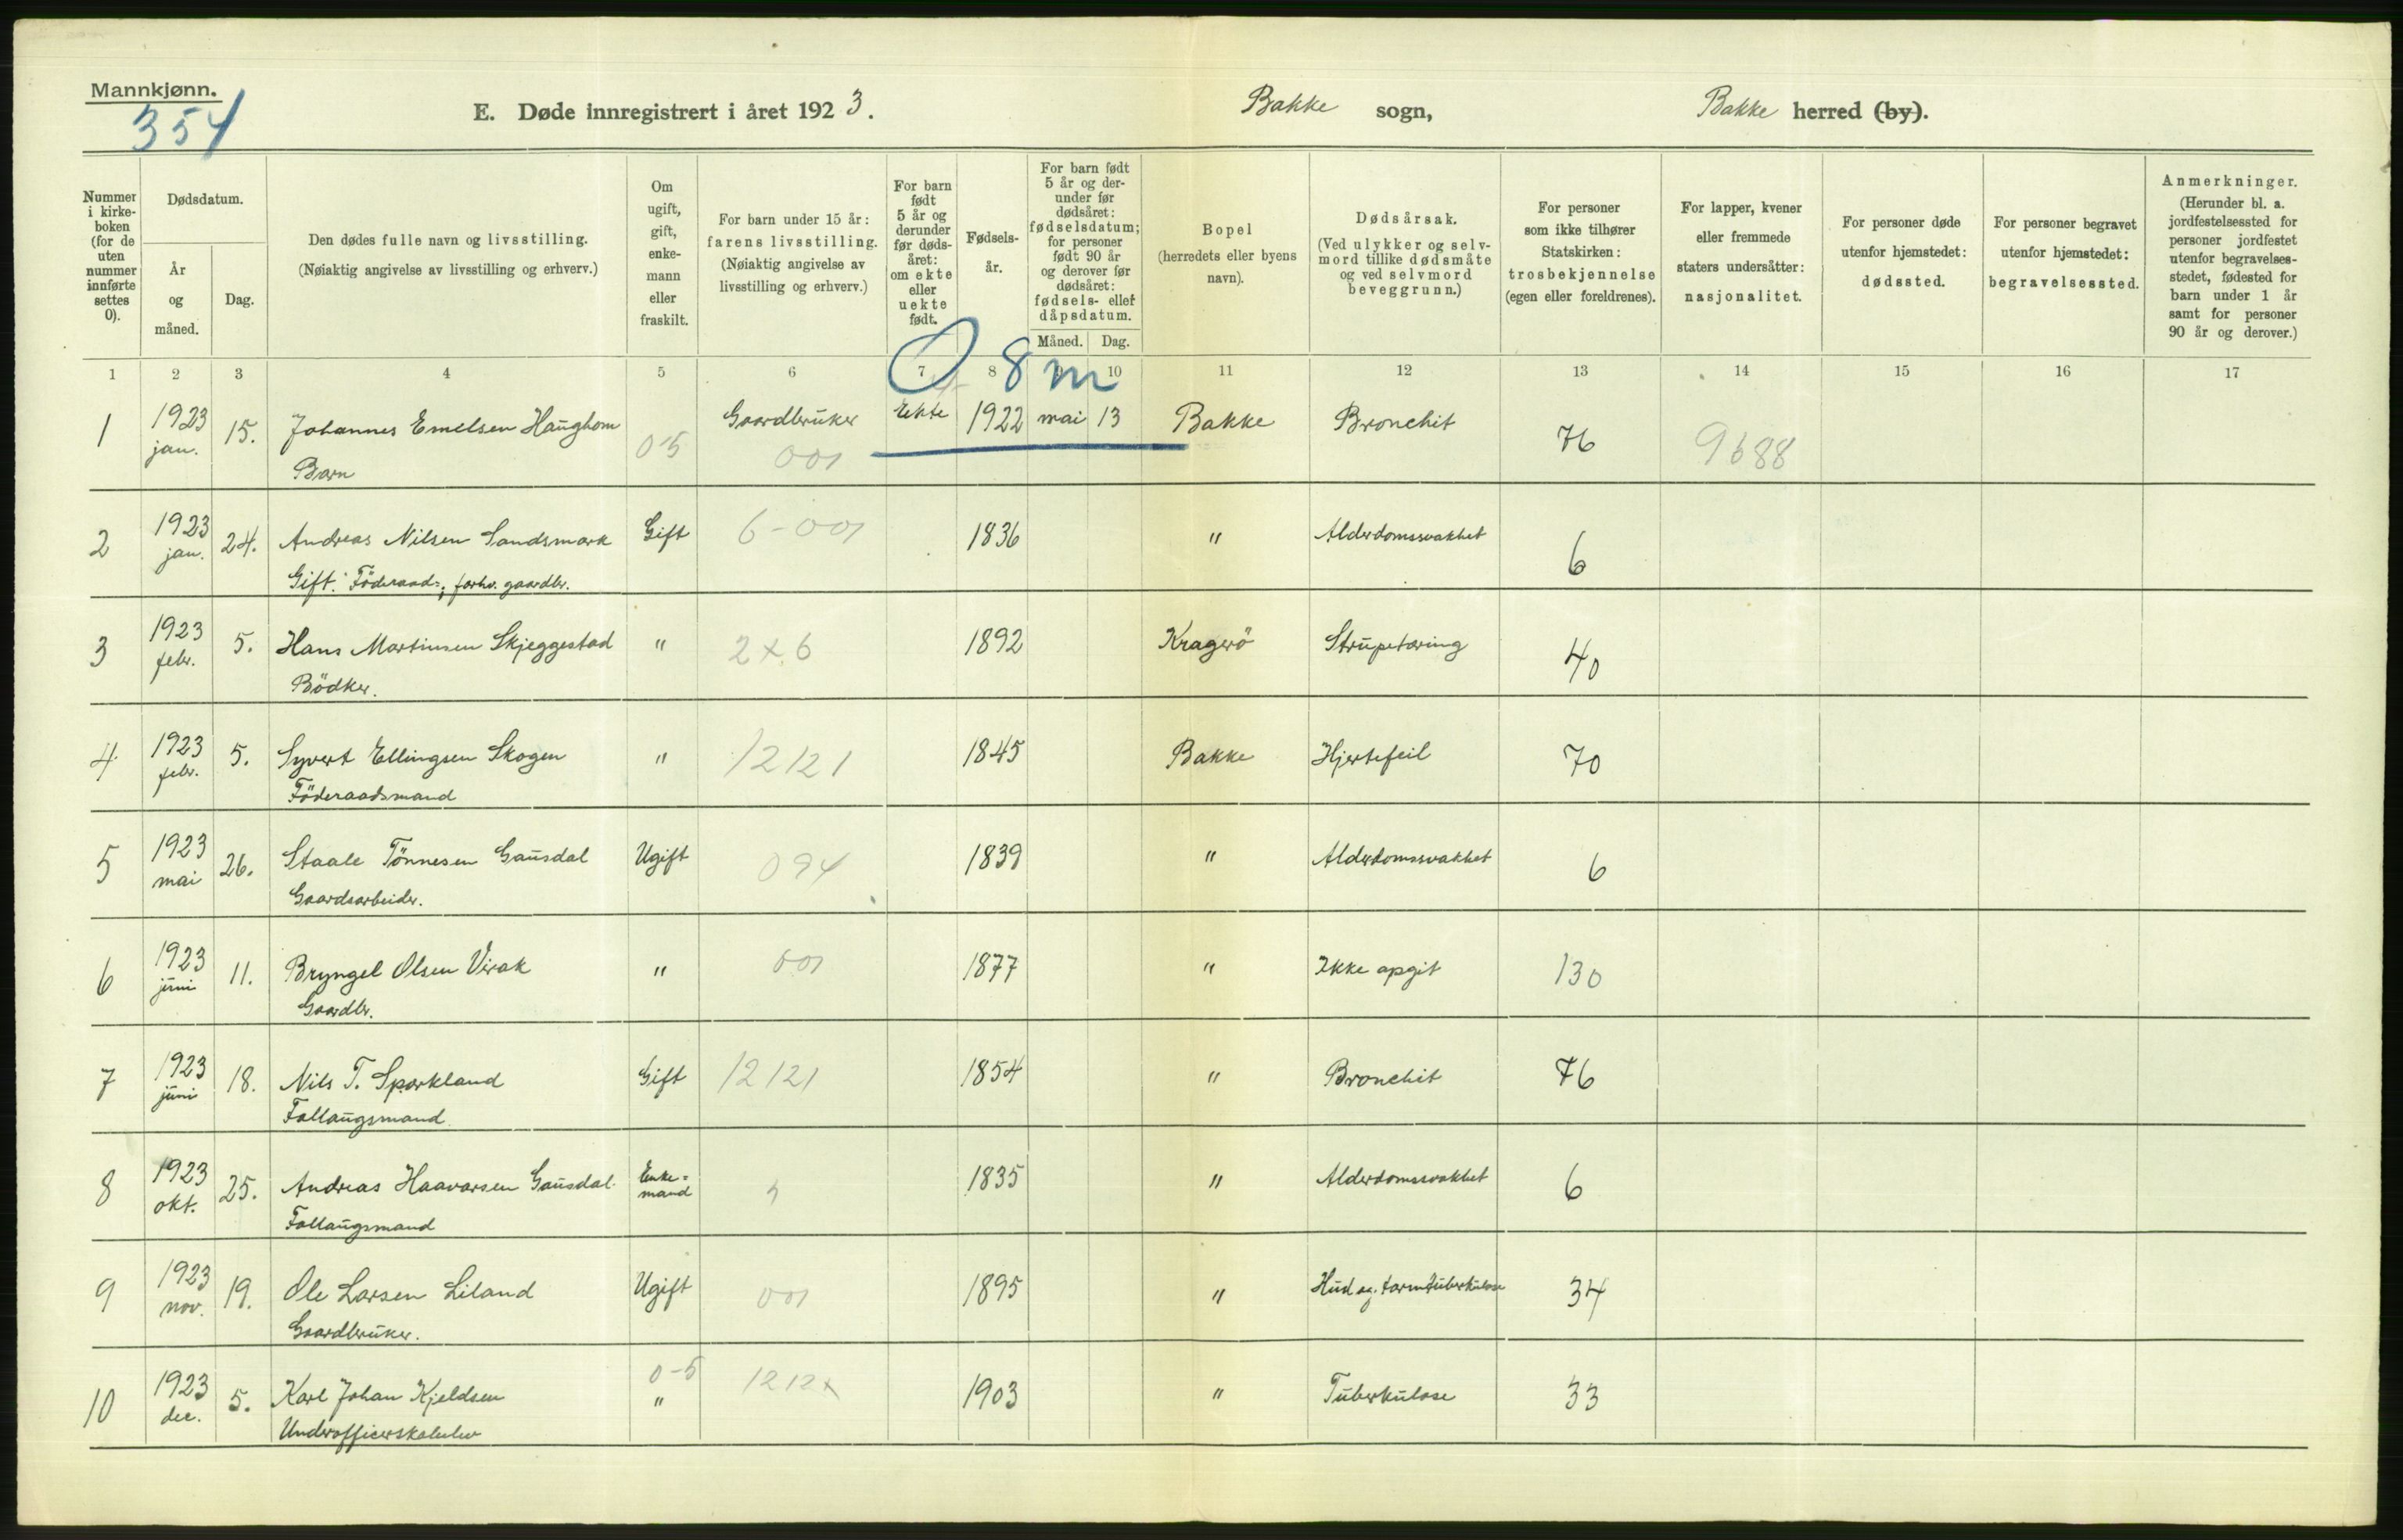 Mannkjønn.
354
E. Døde innregistrert i året 1923.
Bakke sogn,
Bakke herred (by).
Nummer i kirke-boken (for de uten nummer innførte settes 0).
Dødsdatum.
År og måned.
Dag.
Den dødes fulle navn og livsstilling.
(Nøiaktig angivelse av livsstilling og erhverv.)
Om ugift, gift, enke-mann eller fraskilt.
For barn under 15 år: farens livsstilling. (Nøiaktig angivelse av livsstilling og erhverv.)
For barn født 5 år og derunder før døds-året: om ekte eller uekte født.
Fødsels-år.
For barn født 5 år og der-under før dødsåret: fødselsdatum; for personer født 90 år og derover før dødsåret: fødsels- eller dåpsdatum.
Måned. Dag.
Bopel (herredets eller byens navn).
Dødsårsak. (Ved ulykker og selv-mord tillike dødsmåte og ved selvmord beveggrunn.)
For personer som ikke tilhører Statskirken: trosbekjennelse (egen eller foreldrenes).
For lapper, kvener eller fremmede staters undersåtter: nasjonalitet.
For personer døde utenfor hjemstedet: dødssted.
For personer begravet utenfor hjemstedet: begravelsessted.
Anmerkninger. (Herunder bl. a. jordfestelsessted for personer jordfestet utenfor begravelses-stedet, fødested for barn under 1 år samt for personer 90 år og derover.)
1 2 3 4 5 6 7 8 9 10 11 12 13 14 15 16 17
8 m
1 1923 jan. 15. Johannes Emelsen Haughom Gaardbruker Ekte 1922 mai 13 Bakke Bronchit 76 9688
Barn 05 001
2 1923 jan. 24. Andreas Nilsen Sandsmark Gift 6-001 1836 " Alderdomssvakhet 6
Gift. Föderaad-; forhv. gaardbr.
3 1923 febr. 5. Hans Martinsen Skjeggestad " 2x6 1892 Kragerö Strupetæring 40
Bödker.
4 1923 febr. 5. Syvert Ellingsen Skogen " 12121 1845 Bakke Hjertefeil 70
Föderaadsmand
5 1923 mai 26. Staale Tönnesen Gausdal Ugift 094 1839 " Alderdomssvakhet 6
Gaardsarbeider.
6 1923 juni 11. Bryngel Olsen Virak " 001 1877 " Ikke opgit 130
Gaardbr.
7 1923 juni 18. Nils T. Sparkland Gift 12121 1854 " Bronchit 76
Follaugsmand
8 1923 okt. 25. Andreas Haavarsen Gausdal Enke-mand 1835 " Alderdomssvakhet 6
Follaugsmand
9 1923 nov. 19. Ole Larsen Liland Ugift 001 1895 " Hud og tarmtuberkulose 34
Gaardbruker.
10 1923 dec. 5. Karl Johan Kjeldsen 0-5 " 1212x 1903 " Tuberkulose 33
Underofficerskoleelev